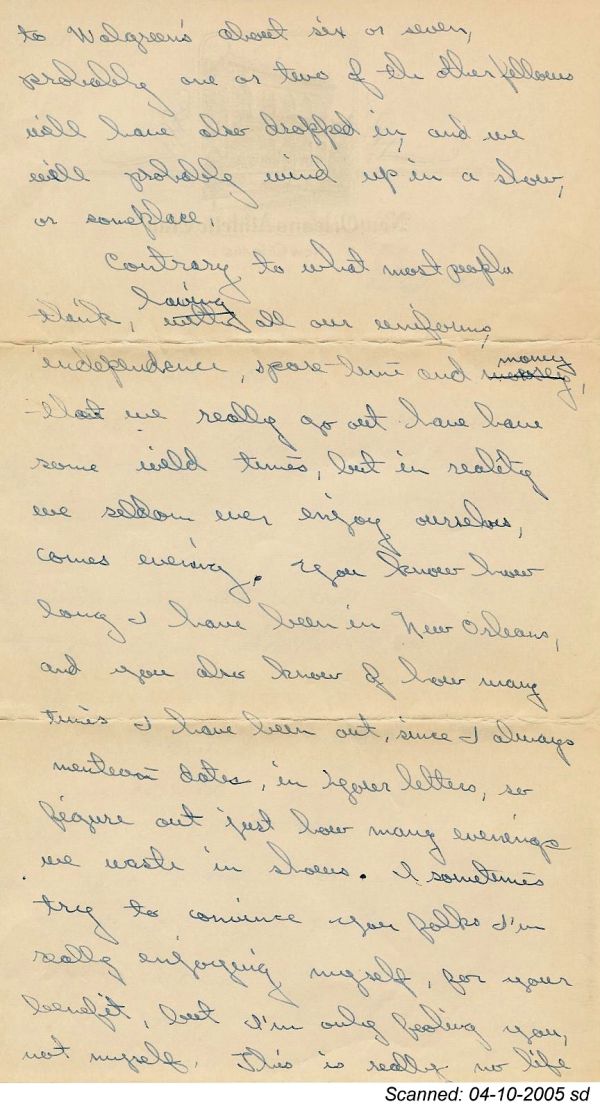 to Walgreen's about six or seven,
probably one or two of the other fellows
will have also dropped in, and we
will probably wind up in a show,
or someplace.
Contrary to what most people
think, having all our uniforms,
independence, spare-time and money,
that we really go out have have
some wild times, but in reality
we seldom ever enjoy ourselves,
comes evening. You know how
long I have been in New Orleans,
and you also know of how many
times I have been out, since I always
mention dates, in your letters, so
figure out just how many evenings
we waste in shows. I sometimes
try to convince you folks I'm
really enjoying myself, for your
benefit, but I'm only fooling you,
not myself. This is really no life
Scanned: 04-10-2005 sd